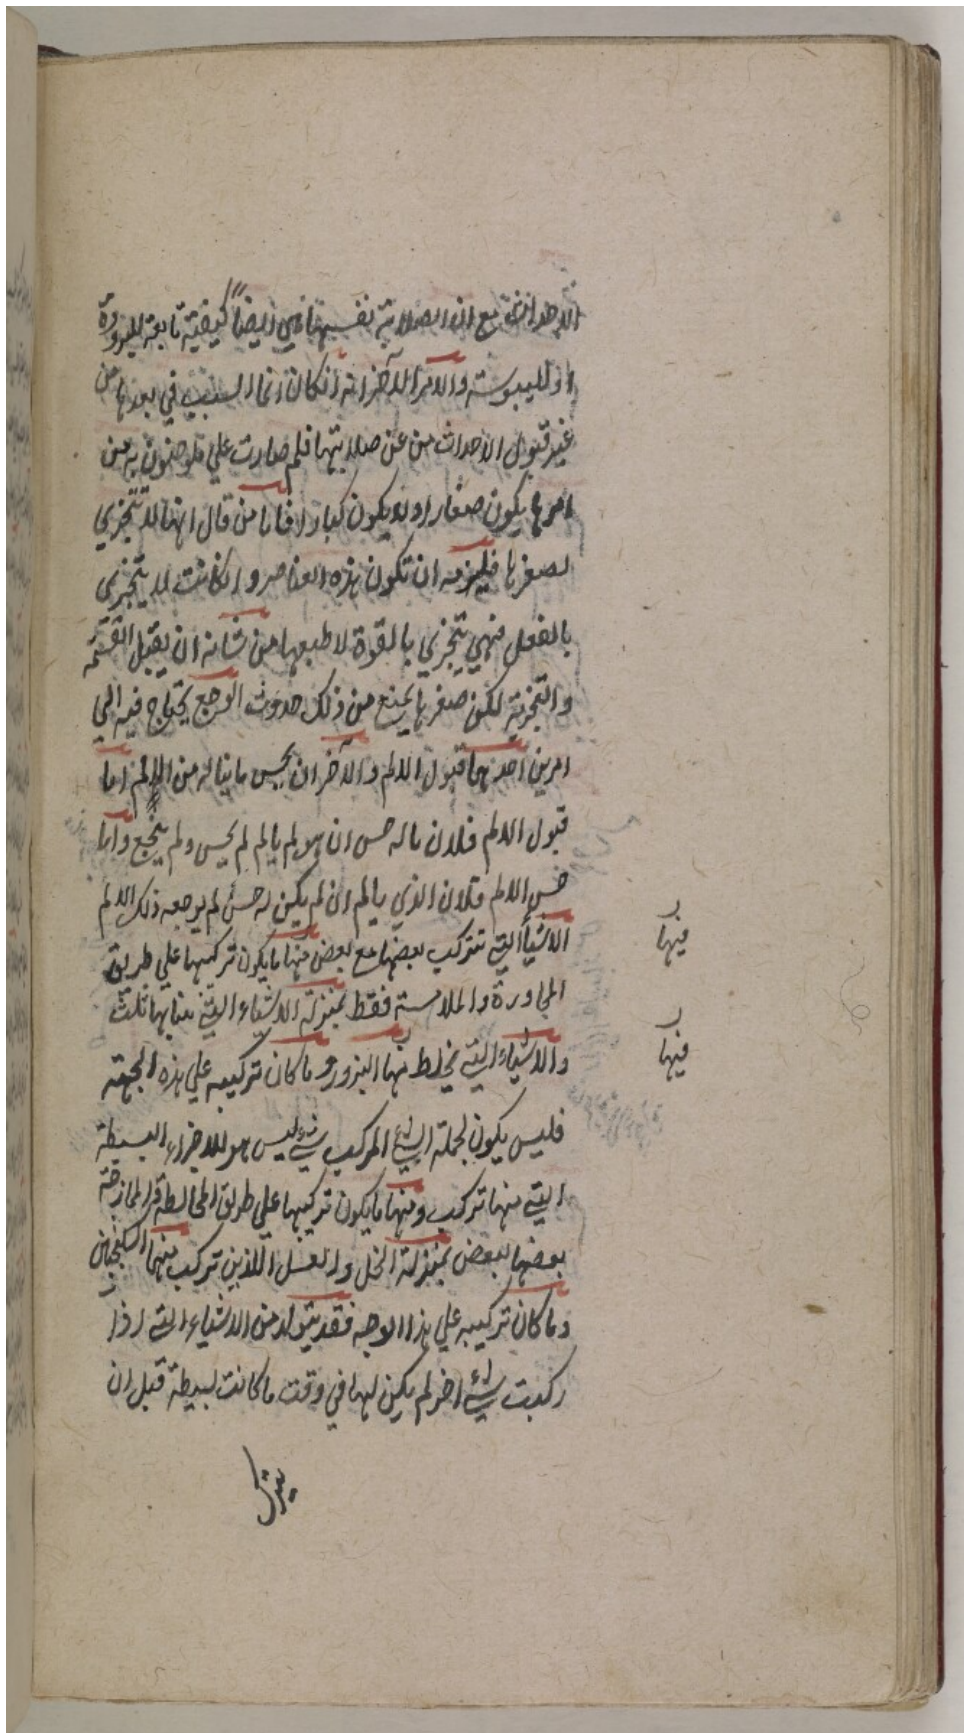 الاحداث مع ان الصلابة نفسها هي ايضاً كيفية تابعة للبرودة
او لليبوسة والامر الآخر انه ان كان انما السبب في بعدها من
غير قبول الاحداث من عن صلابتها فلم صارت علي
امرها يكون صغارا ولا يكون كبارا فاما من قال انها لا تتجزي
لصغرها فليزمه ان تكون هذه العناصر وان كانت لا يتجزي
بالفعل فهي يتجزي بالقوة لا طبعها من شانه ان يقبل القسمة
والتجزية لكن صغرها يمنع من ذلك حدوث الوجع يحتاج فيه الي
امرين احدهما قبول الالم والآخر ان يحس ما يناله من الالم اما
قبول الالم فلان ماله حس ان هو لم يالم لم يحس ولم ينجع واما
حس الالم فلان الذي يالم ان لم يكن له حس لم يوجعه ذلك الالم
الاشيأ التي تتركب بعضها مع بعض منها ما يكون تركيبها علي طريق
المجاورة والملامسة فقط بمنزلة الاشياء التي
والاشياء التي يخلط فيها البزور وما كان تركيبه علي هذه الجهة
فليس يكون لجملة الشئ المركب شئ ليس هو للاجزاء البسيطة
التي منها تركب ومنها ما يكون تركيبها علي طريق المخالطة والممازجة
بعضها لبعض بمنزلة الخل والعسل اللذين تركب منهما السكنجبين
وما كان تركيبه علي هذا الوجه فقد يتولد من الاشياء التي اذا
ركبت شئ اخر لم يكن لها في وقت ما كانت بسيطة قبل ان
فيها
فيها